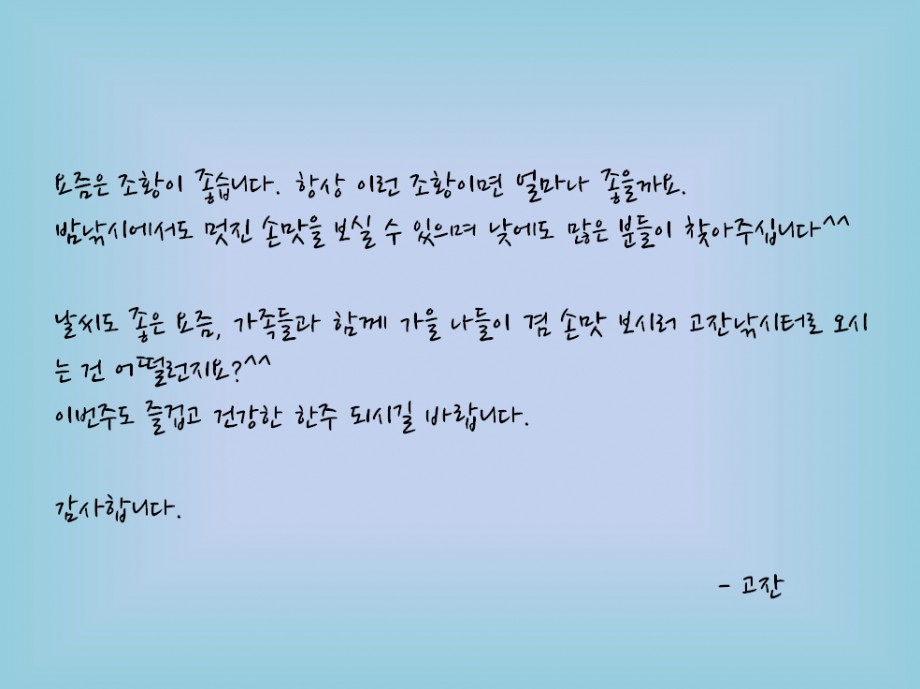 요즘은 조황이 좋습니다. 항상 이런 조황이면 얼마나 좋을까요.
밤낚시에서도 멋진 손맛을 보실 수 있으며 낮에도 많은 분들이 찾아주십니다^^
날씨도 좋은 요즘, 가족들과 함께 가을 나들이 겸 손맛 보시러 고잔낚시터로 오시
는 건 어떨런지요?^^
이번주도 즐겁고 건강한 한주 되시길 바랍니다.
감사합니다.
- 고잔